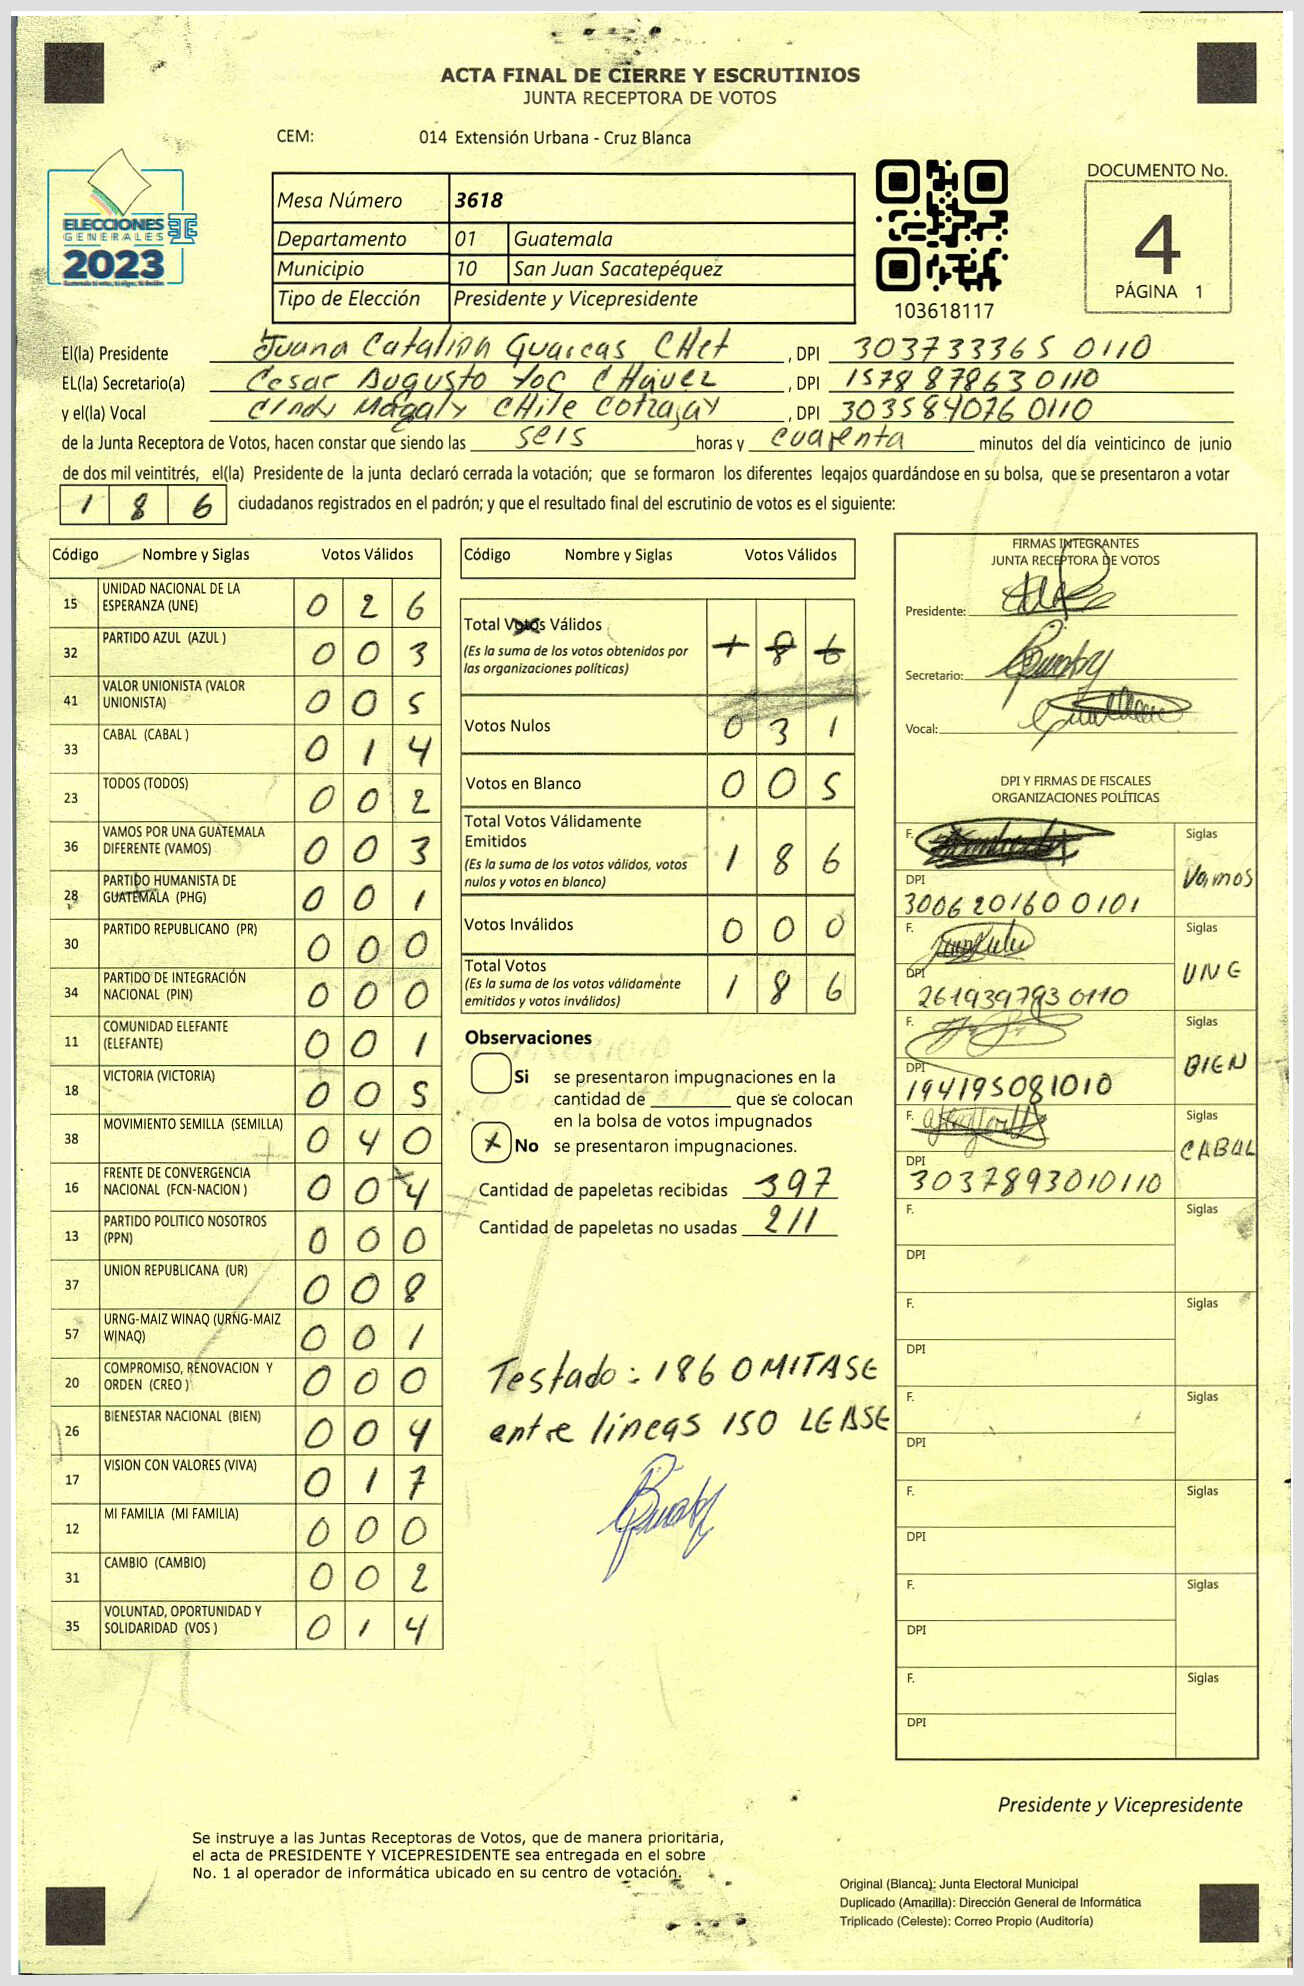 ACTA FINAL DE CIERRE Y ESCRUTINIOS
JUNTA RECEPTORA DE VOTOS
CEM: 014 Extensión Urbana - Cruz Blanca
ELECCIONES
GENERALES
2023
Mesa Número 3618
Departamento 01 Guatemala
Municipio 10 San Juan Sacatepéquez
Tipo de Elección Presidente y Vicepresidente
103618117
DOCUMENTO No.
4
PÁGINA 1
El(la) Presidente Juana Catalina Guarcas CHet, DPI 303733365 0110
EL(la) Secretario(a) Cesar Augusto Yoc CHávez, DPI 1578 87863 0110
y el(la) Vocal Cindy Magaly CHile Cotzajay, DPI 303584076 0110
de la Junta Receptora de Votos, hacen constar que siendo las seis horas y cuarenta minutos del día veinticinco de junio
de dos mil veintitrés, el(la) Presidente de la junta declaró cerrada la votación; que se formaron los diferentes legajos guardándose en su bolsa, que se presentaron a votar
1 8 6 ciudadanos registrados en el padrón; y que el resultado final del escrutinio de votos es el siguiente:
Código Nombre y Siglas Votos Válidos
15 UNIDAD NACIONAL DE LA ESPERANZA (UNE) 0 2 6
32 PARTIDO AZUL (AZUL ) 0 0 3
41 VALOR UNIONISTA (VALOR UNIONISTA) 0 0 5
33 CABAL (CABAL ) 0 1 4
23 TODOS (TODOS) 0 0 2
36 VAMOS POR UNA GUATEMALA DIFERENTE (VAMOS) 0 0 3
28 PARTIDO HUMANISTA DE GUATEMALA (PHG) 0 0 1
30 PARTIDO REPUBLICANO (PR) 0 0 0
34 PARTIDO DE INTEGRACIÓN NACIONAL (PIN) 0 0 0
11 COMUNIDAD ELEFANTE (ELEFANTE) 0 0 1
18 VICTORIA (VICTORIA) 0 0 5
38 MOVIMIENTO SEMILLA (SEMILLA) 0 4 0
16 FRENTE DE CONVERGENCIA NACIONAL (FCN-NACION ) 0 0 4
13 PARTIDO POLITICO NOSOTROS (PPN) 0 0 0
37 UNION REPUBLICANA (UR) 0 0 8
57 URNG-MAIZ WINAQ (URNG-MAIZ WINAQ) 0 0 1
20 COMPROMISO, RENOVACION Y ORDEN (CREO ) 0 0 0
26 BIENESTAR NACIONAL (BIEN) 0 0 4
17 VISION CON VALORES (VIVA) 0 1 7
12 MI FAMILIA (MI FAMILIA) 0 0 0
31 CAMBIO (CAMBIO) 0 0 2
35 VOLUNTAD, OPORTUNIDAD Y SOLIDARIDAD (VOS ) 0 1 4
Código Nombre y Siglas Votos Válidos
Total Votos Válidos 1 8 6
(Es la suma de los votos obtenidos por
las organizaciones políticas)
Votos Nulos 0 3 1
Votos en Blanco 0 0 5
Total Votos Válidamente
Emitidos 1 8 6
(Es la suma de los votos válidos, votos
nulos y votos en blanco)
Votos Inválidos 0 0 0
Total Votos 1 8 6
(Es la suma de los votos válidamente
emitidos y votos inválidos)
Observaciones
Si se presentaron impugnaciones en la
cantidad de ________ que se colocan
en la bolsa de votos impugnados
x No se presentaron impugnaciones.
Cantidad de papeletas recibidas 397
Cantidad de papeletas no usadas 211
Testado: 186 OMITASE
entre líneas 150 LEASE
FIRMAS INTEGRANTES
JUNTA RECEPTORA DE VOTOS
Presidente:
Secretario:
Vocal:
DPI Y FIRMAS DE FISCALES
ORGANIZACIONES POLÍTICAS
F. Siglas
Vamos
DPI
3006 20160 0101
F. Siglas
UNE
DPI
261939793 0110
F. Siglas
BIEN
DPI
194195081010
F. Siglas
CABAL
DPI
3037893010110
F. Siglas
DPI
F. Siglas
DPI
F. Siglas
DPI
F. Siglas
DPI
F. Siglas
DPI
F. Siglas
DPI
Presidente y Vicepresidente
Se instruye a las Juntas Receptoras de Votos, que de manera prioritaria,
el acta de PRESIDENTE Y VICEPRESIDENTE sea entregada en el sobre
No. 1 al operador de informática ubicado en su centro de votación.
Original (Blanca): Junta Electoral Municipal
Duplicado (Amarilla): Dirección General de Informática
Triplicado (Celeste): Correo Propio (Auditoría)